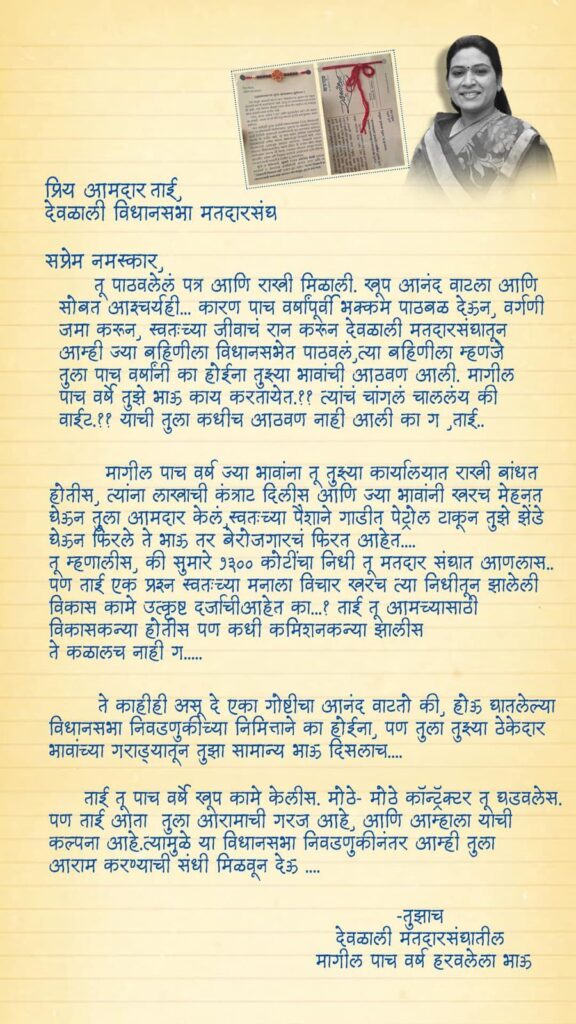 प्रिय आमदार ताई,
देवळाली विधानसभा मतदारसंघ
सप्रेम नमस्कार,
तू पाठवलेलं पत्र आणि राखी मिळाली. खूप आनंद वाटला आणि
सोबत आश्चर्यही... कारण पाच वर्षांपूर्वी भक्कम पाठबळ देऊन, वर्गणी
जमा करून, स्वतःच्या जीवाचं रान करून देवळाली मतदारसंघातून
आम्ही ज्या बहिणीला विधानसभेत पाठवलं,त्या बहिणीला म्हणजे
तुला पाच वर्षांनी का होईना तुझ्या भावांची आठवण आली. मागील
पाच वर्षे तुझे भाऊ काय करतायेत.?? त्यांचं चांगलं चाललंय की
वाईट.?? याची तुला कधीच आठवण नाही आली का ग ,ताई..
मागील पाच वर्ष ज्या भावांना तू तुझ्या कार्यालयात राखी बांधत
होतीस, त्यांना लाखाची कंत्राट दिलीस आणि ज्या भावांनी खरच मेहनत
घेऊन तुला आमदार केलं,स्वतःच्या पैशाने गाडीत पेट्रोल टाकून तुझे झेंडे
घेऊन फिरले ते भाऊ तर बेरोजगारचं फिरत आहेत....
तू म्हणालीस, की सुमारे १३०० कोटींचा निधी तू मतदार संघात आणलास..
पण ताई एक प्रश्न स्वतःच्या मनाला विचार खरच त्या निधीतून झालेली
विकास कामे उत्कृष्ट दर्जाचीआहेत का...? ताई तू आमच्यासाठी
विकासकन्या होतीस पण कधी कमिशनकन्या झालीस
ते कळालच नाही ग.....
ते काहीही असू दे एका गोष्टीचा आनंद वाटतो की, होऊ घातलेल्या
विधानसभा निवडणुकीच्या निमित्ताने का होईना, पण तुला तुझ्या ठेकेदार
भावांच्या गराड्यातून तुझा सामान्य भाऊ दिसलाच....
ताई तू पाच वर्षे खूप कामे केलीस. मोठे- मोठे कॉन्ट्रॅक्टर तू घडवलेस.
पण ताई ओता तुला ओरामाची गरज आहे, आणि आम्हाला योची
कल्पना आहे.त्यामुळे या विधानसभा निवडणुकीनंतर आम्ही तुला
आराम करण्याची संधी मिळवून देऊ ....
-तुझाच
देवळाली मतदारसंघातील
मागील पाच वर्ष हरवलेला भाऊ